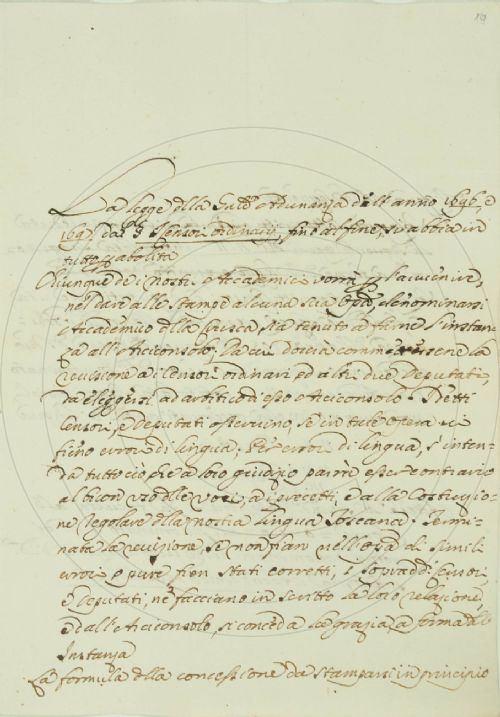 La legge della Sudª ordinanza dell'anno 1696, e
1697 da' 3 Censori ordinarj, fino al fine, si abbia in
tutto p abolita
Chiunque de i nostri Accademici vorrà p l'avvenire,
nel dare alle stampe alcuna sua Opª, denominarsi
Accademico della Crusca, sia tenuto a farne l'instan
za all'Arciconsolo, da cui dovrà commettersene la
revisione a i Censori ordinari ed altri due Deputati,
da eleggersi ad arbitrio di esso Arciconsolo. I detti
Censori, e Deputati osservino, se in tale Opera vi
siano errori di lingua; Per errori di lingua, s'inten-
da tutto ciò che a loro giudizio parrà esser contrario
al buon uso delle voci, a i precetti, e alla Costruzio-
ne regolare della nostra lingua Toscana. Termi-
nata la revisione, se non fian nell'Opª di simili
errori o pure fien stati corretti, i sopradd. Censori,
e Deputati, ne facciano in scritto la loro relazione
e dall'Arciconsolo, si conceda la grazia, a forma dell'
Instanza
La formula della concessione da stamparsi in principio